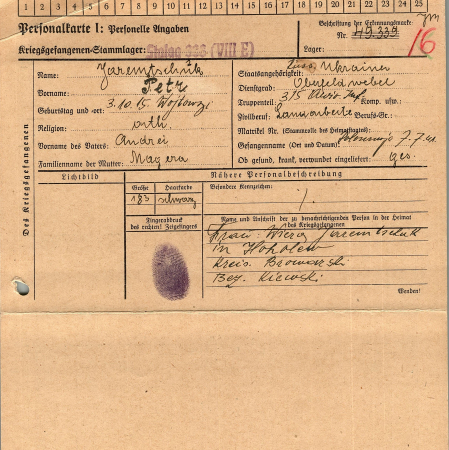 1 2 3 4 5 6 7 8 9 10 11 12 13 14 15 16 17 18 19 20 21 22 23 24 25
Personalkarte I: Personelle Angaben
Kriegsgefangenen-Stammlager: Stalag 336 (VIII E)
Beschriftung der Erkennungsmarke:
Nr. 49.339
Lager:
16
Des Kriegsgefangenen
Name: Jaremtschuk
Vorname: Petr
Geburtstag und -ort: 3.10.15
Religion: orth.
Vorname des Vaters: Andrei
Familienname der Mutter: Magera
Staatsangehörigkeit: Russ. Ukrainer
Dienstgrad: Oberfeldwebel
Truppenteil: 315 Komp. usw.
Zivilberuf: Landarbeiter Berufs-Gr.
Matrikel Nr. (Stammrolle des Heimatstaates)
Gefangennahme (Ort und Datum): 7.7.41
Ob gesund, krank, verwundet eingeliefert: ges.
Lichtbild
Nähere Personalbeschreibung
Größe Haarfarbe
183 schwarz
Besondere Kennzeichen:
Fingerabdruck
des rechten! Zeigefingers
Name und Anschrift der zu benachrichtigenden Person in der Heimat
des Kriegsgefangenen
Frau: Wiera Jaremtschuk
in
Kreis. Browarski
Bez. Kiewski
Wenden!